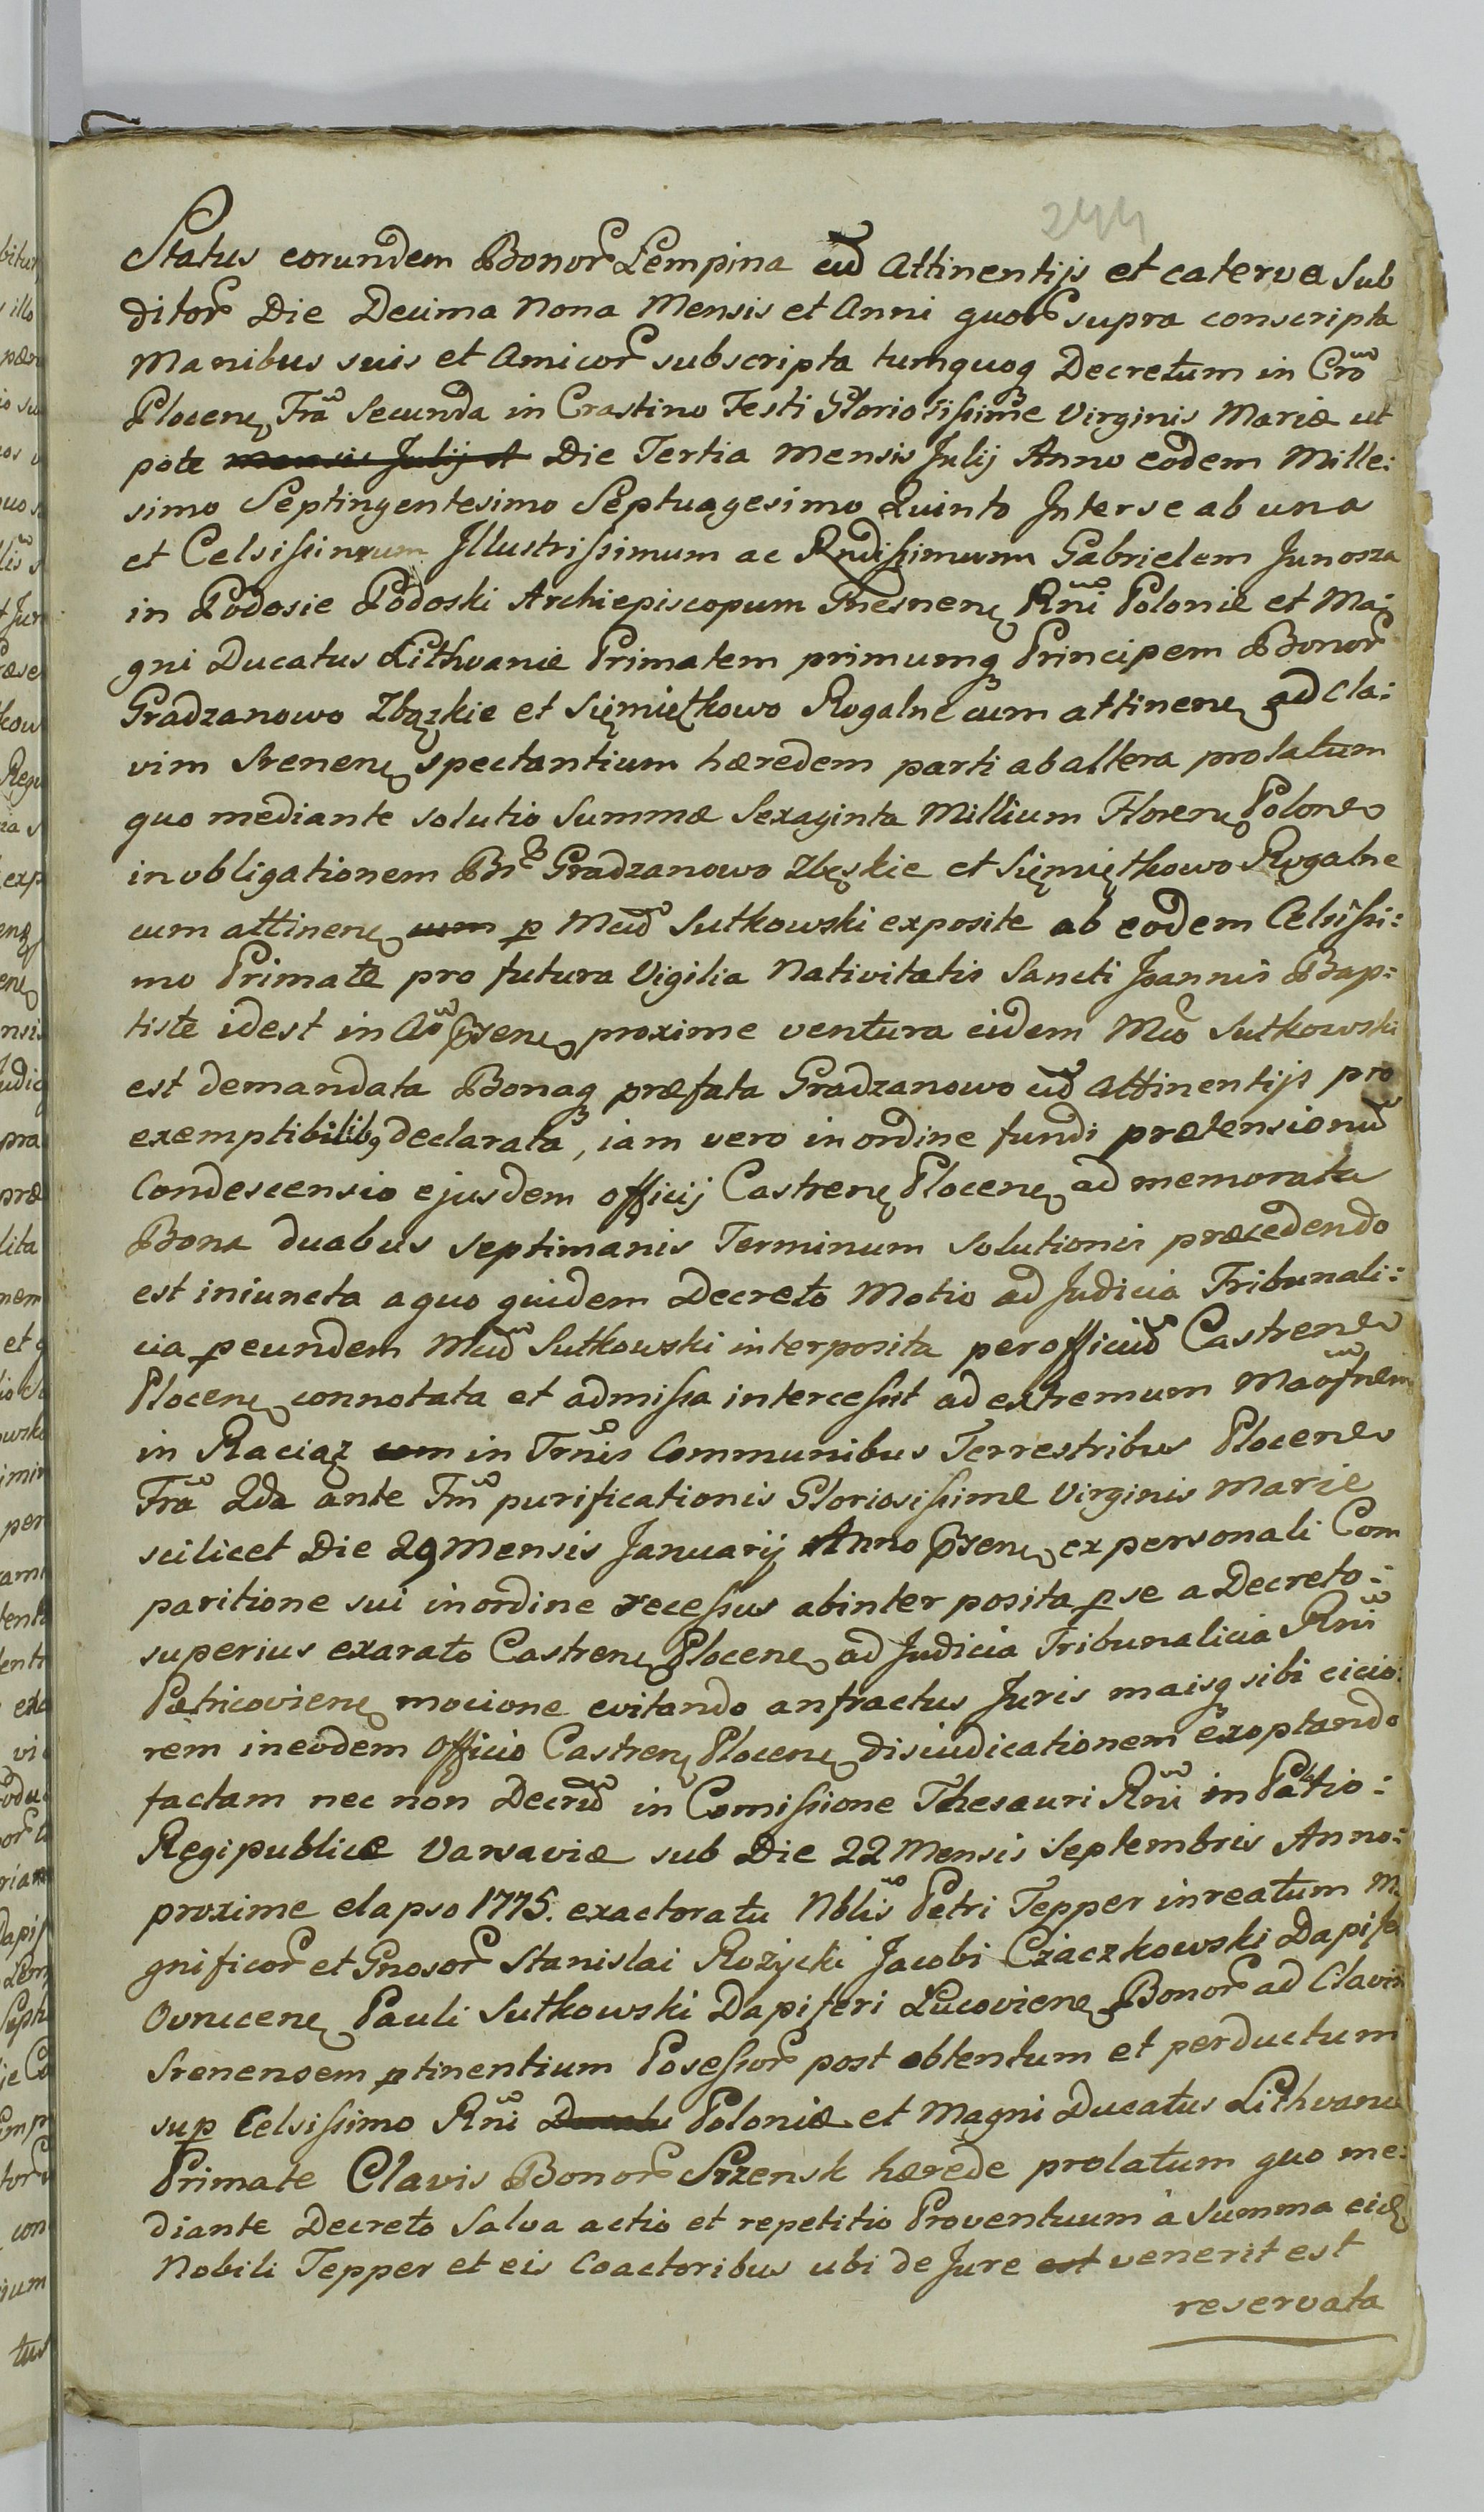 244
Status eorundem Bonor Lempina cud Attinentijs et caterva Sub
ditor Die Decima Nona Mensis et Anni quor supra conscripta
Manibus suis et Amicor subscripta tumquoq Decretum in Cro
Plocen Fra Secunda in Crastino Festi Gloriosissime Virginis Mariæ ut
pote mensis Julij A Die Tertia Mensis Julij Anno eodem Mille:
simo Septingentesimo Septuagesimo Quinto Interse ab una
et Celsissimum Illustrissimum ac Rndissimum Gabrielem Junosza
in Podosie Podoski Archiepiscopum Gnesnen Rni Polonie et Ma:
gni Ducatus Lithvanie Primatem primumq Principem Bonor
Gradzanowo Zbązkie et Sięmiętkowo Rogalne cum attinen ad Cla:
vim Srenen spectantium hæredem parti ab altera prolatum
quo mediante solutio Summæ Sexaginta Millium Floren Polon
in obligationem Bn Gradzanowo Zbęskie et Sięmiętkowo Rogalne
cum attinen cum p Mcud Sutkowski exposite ab eodem Celsissi:
mo Primate pro futura Vigilia Nativitatis Sancti Joannis Bap:
tiste idest in Ao Præsen proxime ventura eidem Mco Sutkowski
est demandata Bonaq præfata Gradzanowo cud Attinentijs pro
exemptibilib declarata, iam vero in ordine fundi prætensionud
Condescensio ejusdem officij Castren Plocen ad memorata
Bona duabus septimanis Terminum solutionis præcedendo
est iniuncta a quo quidem Decreto Motio ad Judicia Tribunali:
cia peundem Mcud Sutkowski interposita per officiud Castren
Plocen connotata et admissa intercessit ad extremum
in Raciąz com in Trnis Communibus Terrestribus Plocen
Fra 2da ante Fm purificationis Gloriosissime Virginis Marie
scilicet Die 29 Mensis Januarij Anno Præsen ex personali Com
paritione sui in ordine recessus ab inter posita p se a Decreto:
superius exarato Castren Plocen ad Judicia Tribunalicia Rni
Petricovien mocione evitando anfractus Juris maisq sibi cicio:
rem ineodem Officio Castren Plocen disiudicationem exoptando
factam nec non Decrud in Comissione Thesauri Rni in Patio:
Regipublicæ Varsaviæ sub Die 22 Mensis Septembris Anno:
proxime elapso 1775. exactoratu Nblis Petri Tepper in reatum M
gnificor et Gnosor Stanislai Rożycki Jacobi Czaczkowski Dapife
Ovrucen Pauli Sutkowski Dapiferi Lucovien Bonor ad Clavim
Srenensem ptinentium Posessor post obtentum et perductum
sup Celsissimo Rni Ducatu Poloniæ et Magni Ducatus Lithvanie
Primate Clavis Bonor Srzensk hærede prolatum quo me:
diante Decreto Salva actio et repetitio Proventuum a Summa eid
Nobili Tepper et eis Coactoribus ubi de Jure est venerit est
reservata